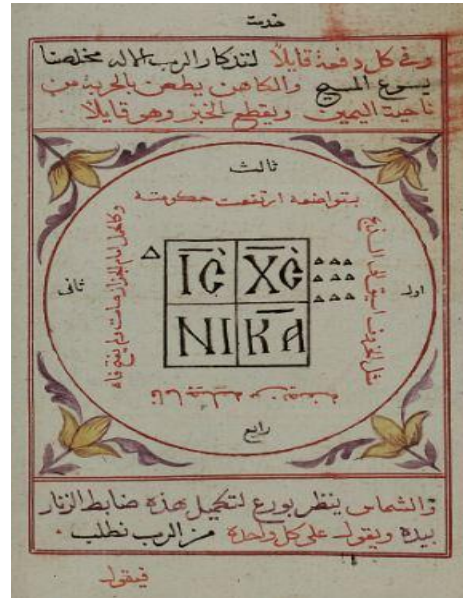 خدمت
وفي كل دفعة قايلاً لتذكار الرب الاله مخلصنا
يسوع المسيح والكاهن يطعن بالحربة من
ناحية اليمين ويقطع الخبز وهو قايلاً
ثالث
بتواضعه ارتفعت حكومته
اول
مثل الخروف اسيق الى الذبح
IC XC
NI KA
وكالحمل امام الجزاز صامت ولم يفتح فاه
ثاني
فاما جيله من
رابع
والشماس ينظر بورع لتكميل هذه ضابط الزنار
بيده ويقول على كل واحدة من الرب نطلب ٠
فيقول